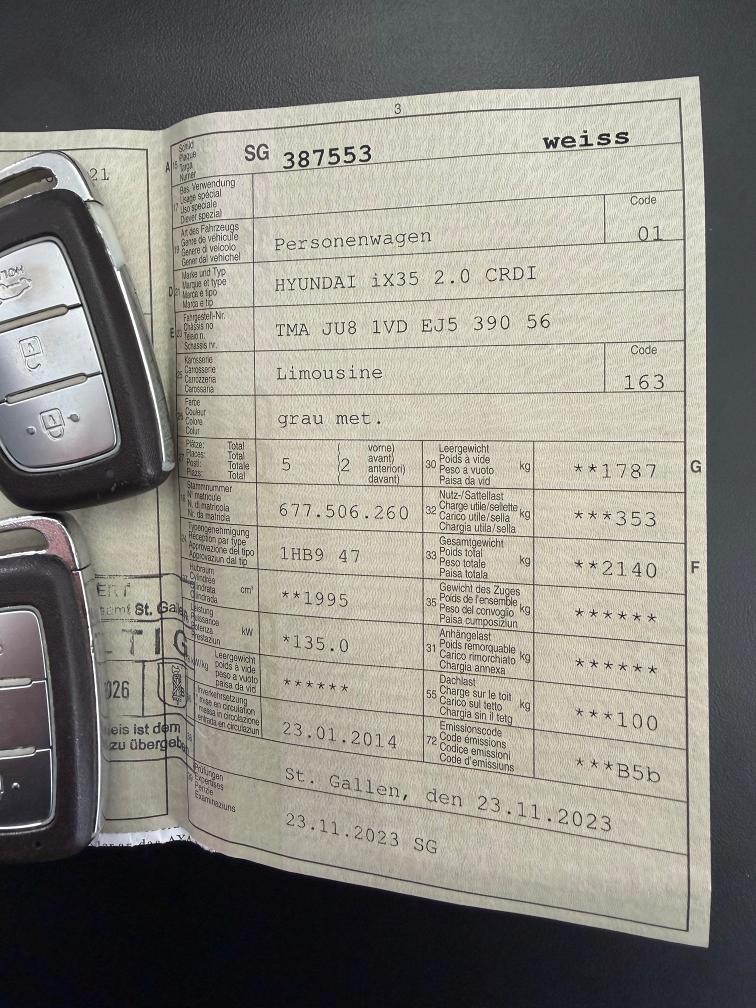 3
A
15
Schild
Plaque
Targa
Numer
SG 387553
weiss
21
17
Bes. Verwendung
Usage spécial
Uso speciale
Diever spezial
19
Art des Fahrzeugs
Genre de véhicule
Genere di veicolo
Gener dal vehichel
Personenwagen
Code
01
D
21
Marke und Typ
Marque et type
Marca e tipo
Marca e tip
HYUNDAI iX35 2.0 CRDI
E
23
Fahrgestell-Nr.
Châssis no
Telaio n.
Schassis nr.
TMA JU8 1VD EJ5 390 56
25
Karosserie
Carrosserie
Carrozzeria
Carossaria
Limousine
Code
163
26
Farbe
Couleur
Colore
Colur
grau met.
27
Plätze: Total
Places: Total
Posti: Totale
Plazs: Total
5
(2
vorne)
avant)
anteriori)
davant)
30
Leergewicht
Poids à vide
Peso a vuoto
Paisa da vid
kg
**1787
G
18
Stammnummer
N° matricule
N. di matricola
Nr. da matricla
677.506.260
32
Nutz-/Sattellast
Charge utile/sellette
Carico utile/sella
Chargia utila/sella
kg
***353
24
Typengenehmigung
Réception par type
Approvazione del tipo
Approvaziun dal tip
1HB9 47
33
Gesamtgewicht
Poids total
Peso totale
Paisa totala
kg
**2140
F
Hubraum
Cylindrée
Cilindrata
Cilindrada
cm³
**1995
35
Gewicht des Zuges
Poids de l'ensemble
Peso del convoglio
Paisa cumposiziun
kg
******
Leistung
Puissance
Potenza
Prestaziun
kW
*135.0
31
Anhängelast
Poids remorquable
Carico rimorchiato
Chargia annexa
kg
******
kW/kg
Leergewicht
poids à vide
peso a vuoto
paisa da vid
******
55
Dachlast
Charge sur le toit
Carico sul tetto
Chargia sin il tetg
kg
***100
36
Inverkehrsetzung
1re mise en circulation
messa in circolazione
entrada en circulaziun
23.01.2014
72
Emissionscode
Code émissions
Codice emissioni
Code d'emissiuns
***B5b
St. Gallen, den 23.11.2023
39
Prüfungen
Expertises
Perizie
Examinaziuns
23.11.2023 SG
ERT
samt St. Gallen
LTIG
026
eis ist dem
zu übergeben
HOLD